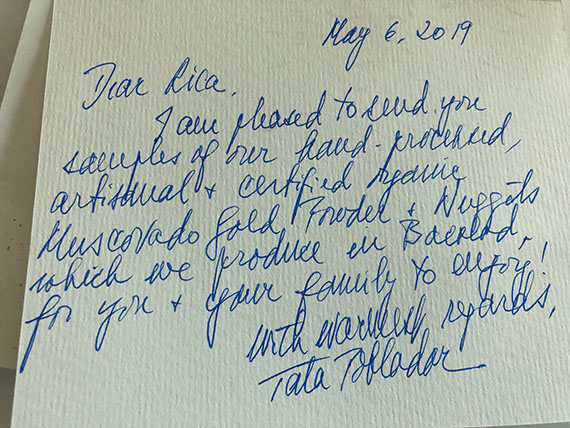 May 6, 2019
Dear Rica,
I am pleased to send you
samples of our hand-processed,
artisanal + certified organic
Muscovado Gold Powder + Nuggets
which we produce in Bacolod,
for you + your family to enjoy!
With warmest regards,
Tata Poblador